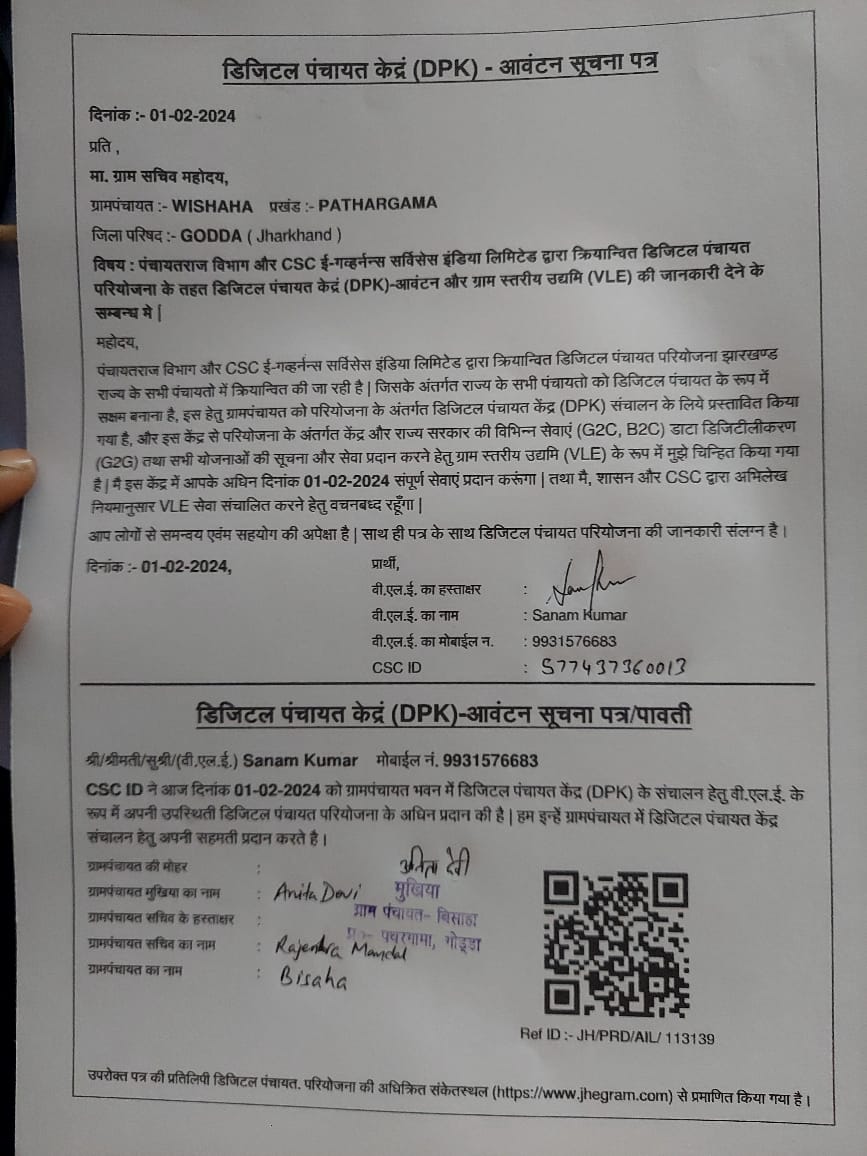 डिजिटल पंचायत केद्रं (DPK) - आवंटन सूचना पत्र
दिनांक :- 01-02-2024
प्रति ,
मा. ग्राम सचिव महोदय,
ग्रामपंचायत :- WISHAHA प्रखंड :- PATHARGAMA
जिला परिषद :- GODDA ( Jharkhand )
विषय : पंचायतराज विभाग और CSC ई-गव्हर्नन्स सर्विसेस इंडिया लिमिटेड द्वारा क्रियान्वित डिजिटल पंचायत
परियोजना के तहत डिजिटल पंचायत केद्रं (DPK)-आवंटन और ग्राम स्तरीय उद्यमि (VLE) की जानकारी देने के
सम्बन्ध मे |
महोदय,
पंचायतराज विभाग और CSC ई-गव्हर्नन्स सर्विसेस इंडिया लिमिटेड द्वारा क्रियान्वित डिजिटल पंचायत परियोजना झारखण्ड
राज्य के सभी पंचायतो में क्रियान्वित की जा रही है | जिसके अंतर्गत राज्य के सभी पंचायतो को डिजिटल पंचायत के रूप में
सक्षम बनाना है, इस हेतु ग्रामपंचायत को परियोजना के अंतर्गत डिजिटल पंचायत केंद्र (DPK) संचालन के लिये प्रस्तावित किया
गया है, और इस केंद्र से परियोजना के अंतर्गत केंद्र और राज्य सरकार की विभिन्न सेवाएं (G2C, B2C) डाटा डिजिटीलीकरण
(G2G) तथा सभी योजनाओं की सूचना और सेवा प्रदान करने हेतु ग्राम स्तरीय उद्यमि (VLE) के रूप में मुझे चिन्हित किया गया
है | मै इस केंद्र में आपके अधिन दिनांक 01-02-2024 संपूर्ण सेवाएं प्रदान करूंगा | तथा मै, शासन और CSC द्वारा अभिलेख
नियमानुसार VLE सेवा संचालित करने हेतु वचनबध्द रहूँगा |
आप लोगों से समन्वय एवंम सहयोग की अपेक्षा है | साथ ही पत्र के साथ डिजिटल पंचायत परियोजना की जानकारी संलग्न है।
दिनांक :- 01-02-2024, प्रार्थी,
वी.एल.ई. का हस्ताक्षर :
वी.एल.ई. का नाम : Sanam Kumar
वी.एल.ई. का मोबाईल न. : 9931576683
CSC ID : 577437360013
डिजिटल पंचायत केद्रं (DPK)-आवंटन सूचना पत्र/पावती
श्री/श्रीमती/सुश्री/(वी.एल.ई.) Sanam Kumar मोबाईल नं. 9931576683
CSC ID ने आज दिनांक 01-02-2024 को ग्रामपंचायत भवन में डिजिटल पंचायत केंद्र (DPK) के संचालन हेतु वी.एल.ई. के
रूप में अपनी उपस्थिती डिजिटल पंचायत परियोजना के अधिन प्रदान की है | हम इन्हें ग्रामपंचायत में डिजिटल पंचायत केंद्र
संचालन हेतु अपनी सहमती प्रदान करते है।
ग्रामपंचायत की मोहर : अनिता देवी
ग्रामपंचायत मुखिया का नाम : Anita Devi मुखिया
ग्रामपंचायत सचिव के हस्ताक्षर : ग्राम पंचायत- बिसाहा
प्र०- पथरगामा, गोड्डा
ग्रामपंचायत सचिव का नाम : Rajendra Mandal
ग्रामपंचायत का नाम : Bisaha
Ref ID :- JH/PRD/AIL/ 113139
उपरोक्त पत्र की प्रतिलिपी डिजिटल पंचायत. परियोजना की अधिक्रित संकेतस्थल (https://www.jhegram.com) से प्रमाणित किया गया है।